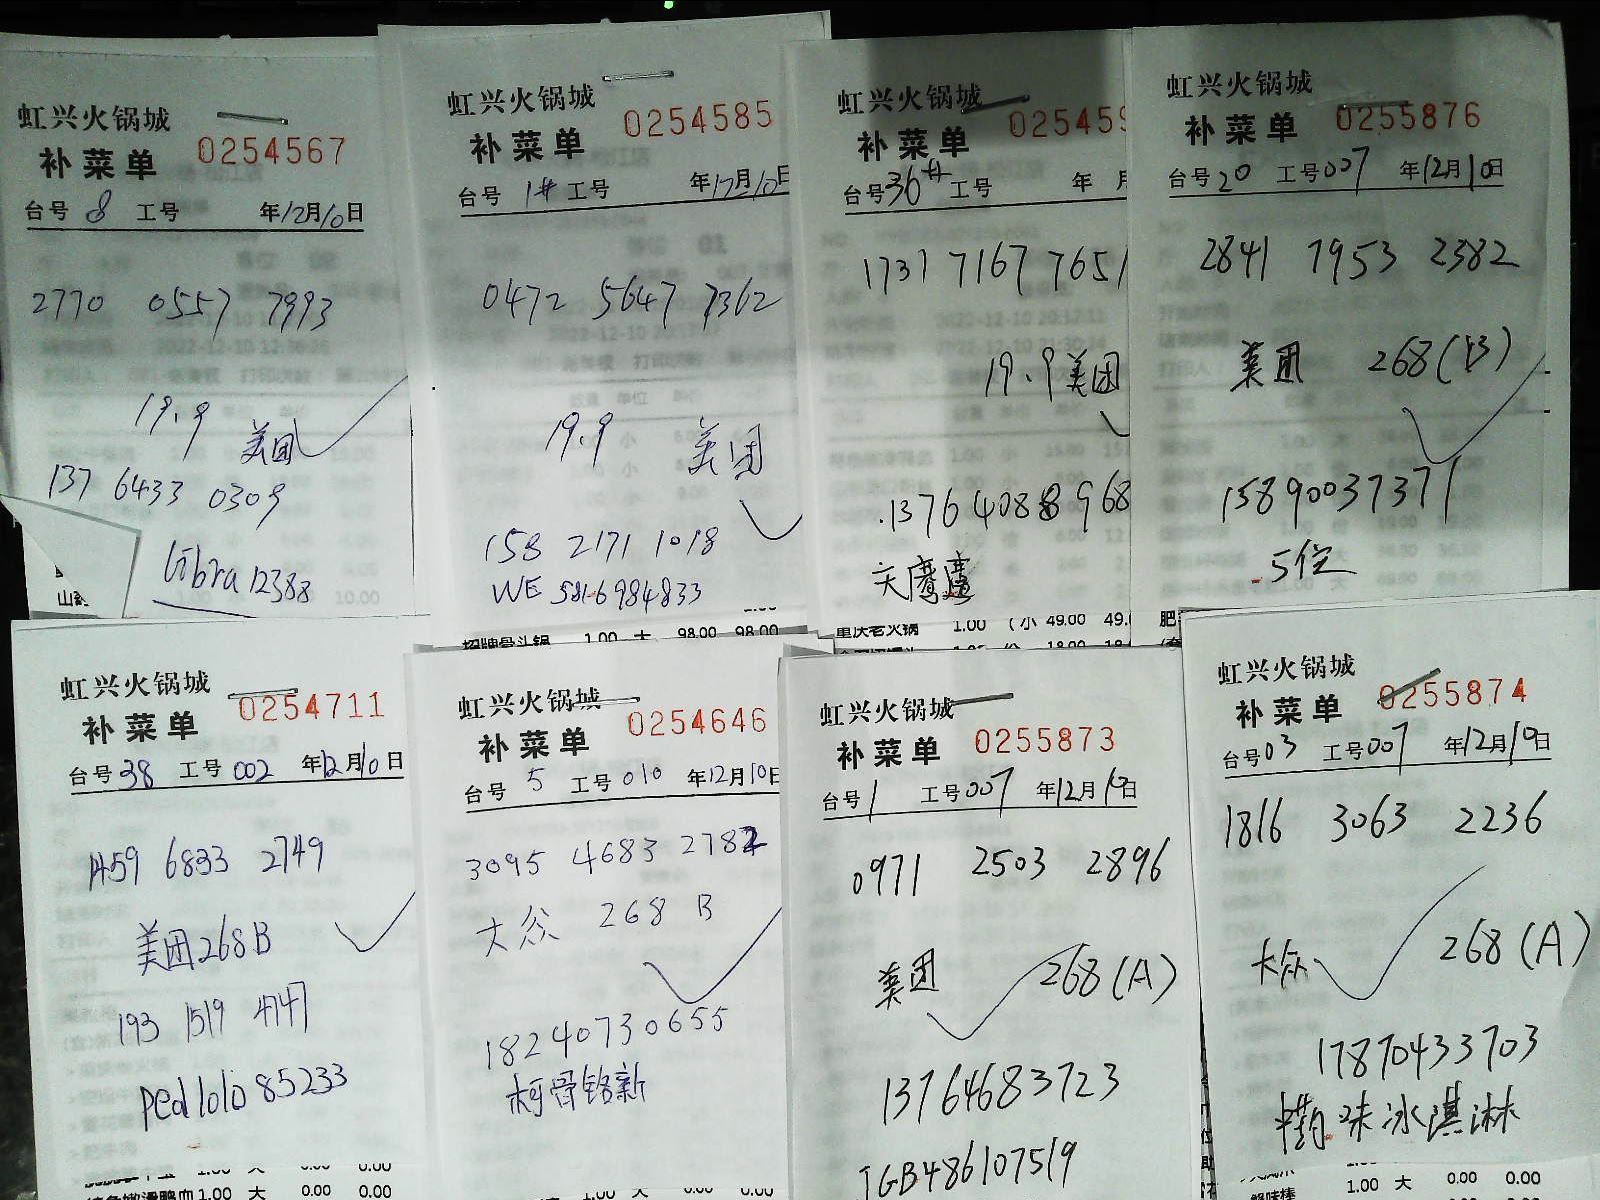 虹兴火锅城
补菜单 0254567
台号 8 工号 年12月10日
2770 0557 7993
19.9 美团
137 6433 0309
Gibra 12388
虹兴火锅城
补菜单 0254585
台号 1# 工号 年12月10日
0472 5647 7362
19.9 美团
158 2171 1018
WE 5816984833
招牌骨头锅 1.00 大 98.00 98.00
虹兴火锅城
补菜单 025459
台号 36# 工号 年 月
1737 7167 7651
19.9 美团
13764088968
重庆老火锅 1.00 (小 49.00 49.
虹兴火锅城
补菜单 0255876
台号 20 工号 007 年12月10日
2841 7953 2382
美团 268(B)
15890037371
5位
肥
虹兴火锅城
补菜单 0254711
台号 38 工号 002 年12月10日
1459 6833 2749
美团268B
193 1519 4747
pedlolo 85233
1.00 大 0.00 0.00
虹兴火锅城
补菜单 0254646
台号 5 工号 010 年12月10日
3095 4683 2782
大众 268 B
18240730655
柯骨铭新
虹兴火锅城
补菜单 0255873
台号 1 工号 007 年12月10日
0971 2503 2896
美团 268(A)
13764683723
IGB486107519
虹兴火锅城
补菜单 0255874
台号 03 工号 007 年12月10日
1816 3063 2236
大众 268(A)
17870433703
味冰淇淋
1.00 大 0.00 0.00